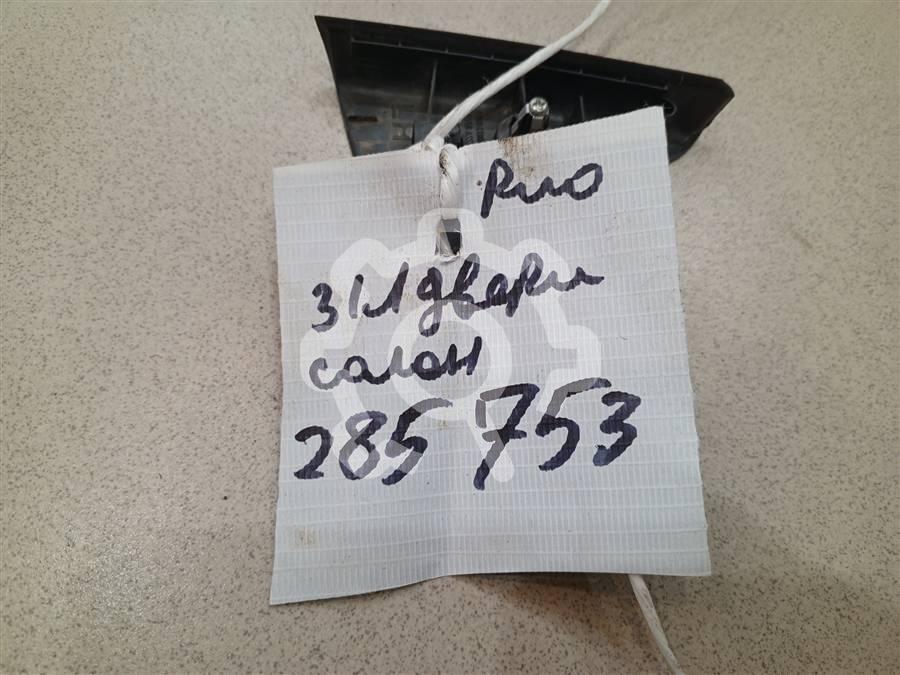 Рио
З/Л двери
салон
285 753